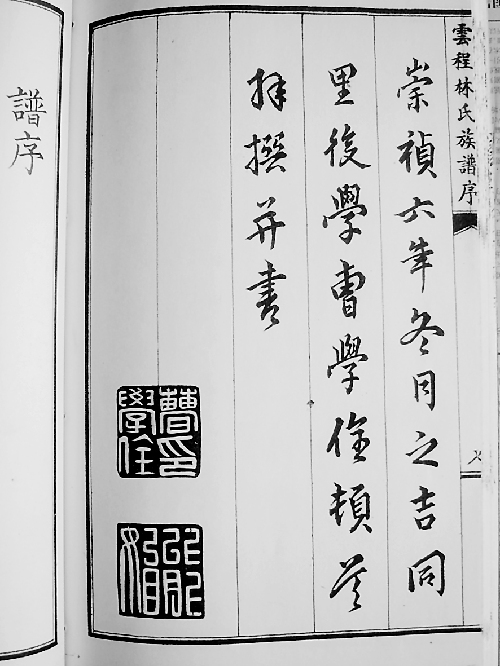 雲程林氏族譜序
崇禎六年冬月之吉同
里後學曹學佺頓首
拜撰并書
曹印
學佺
譜序